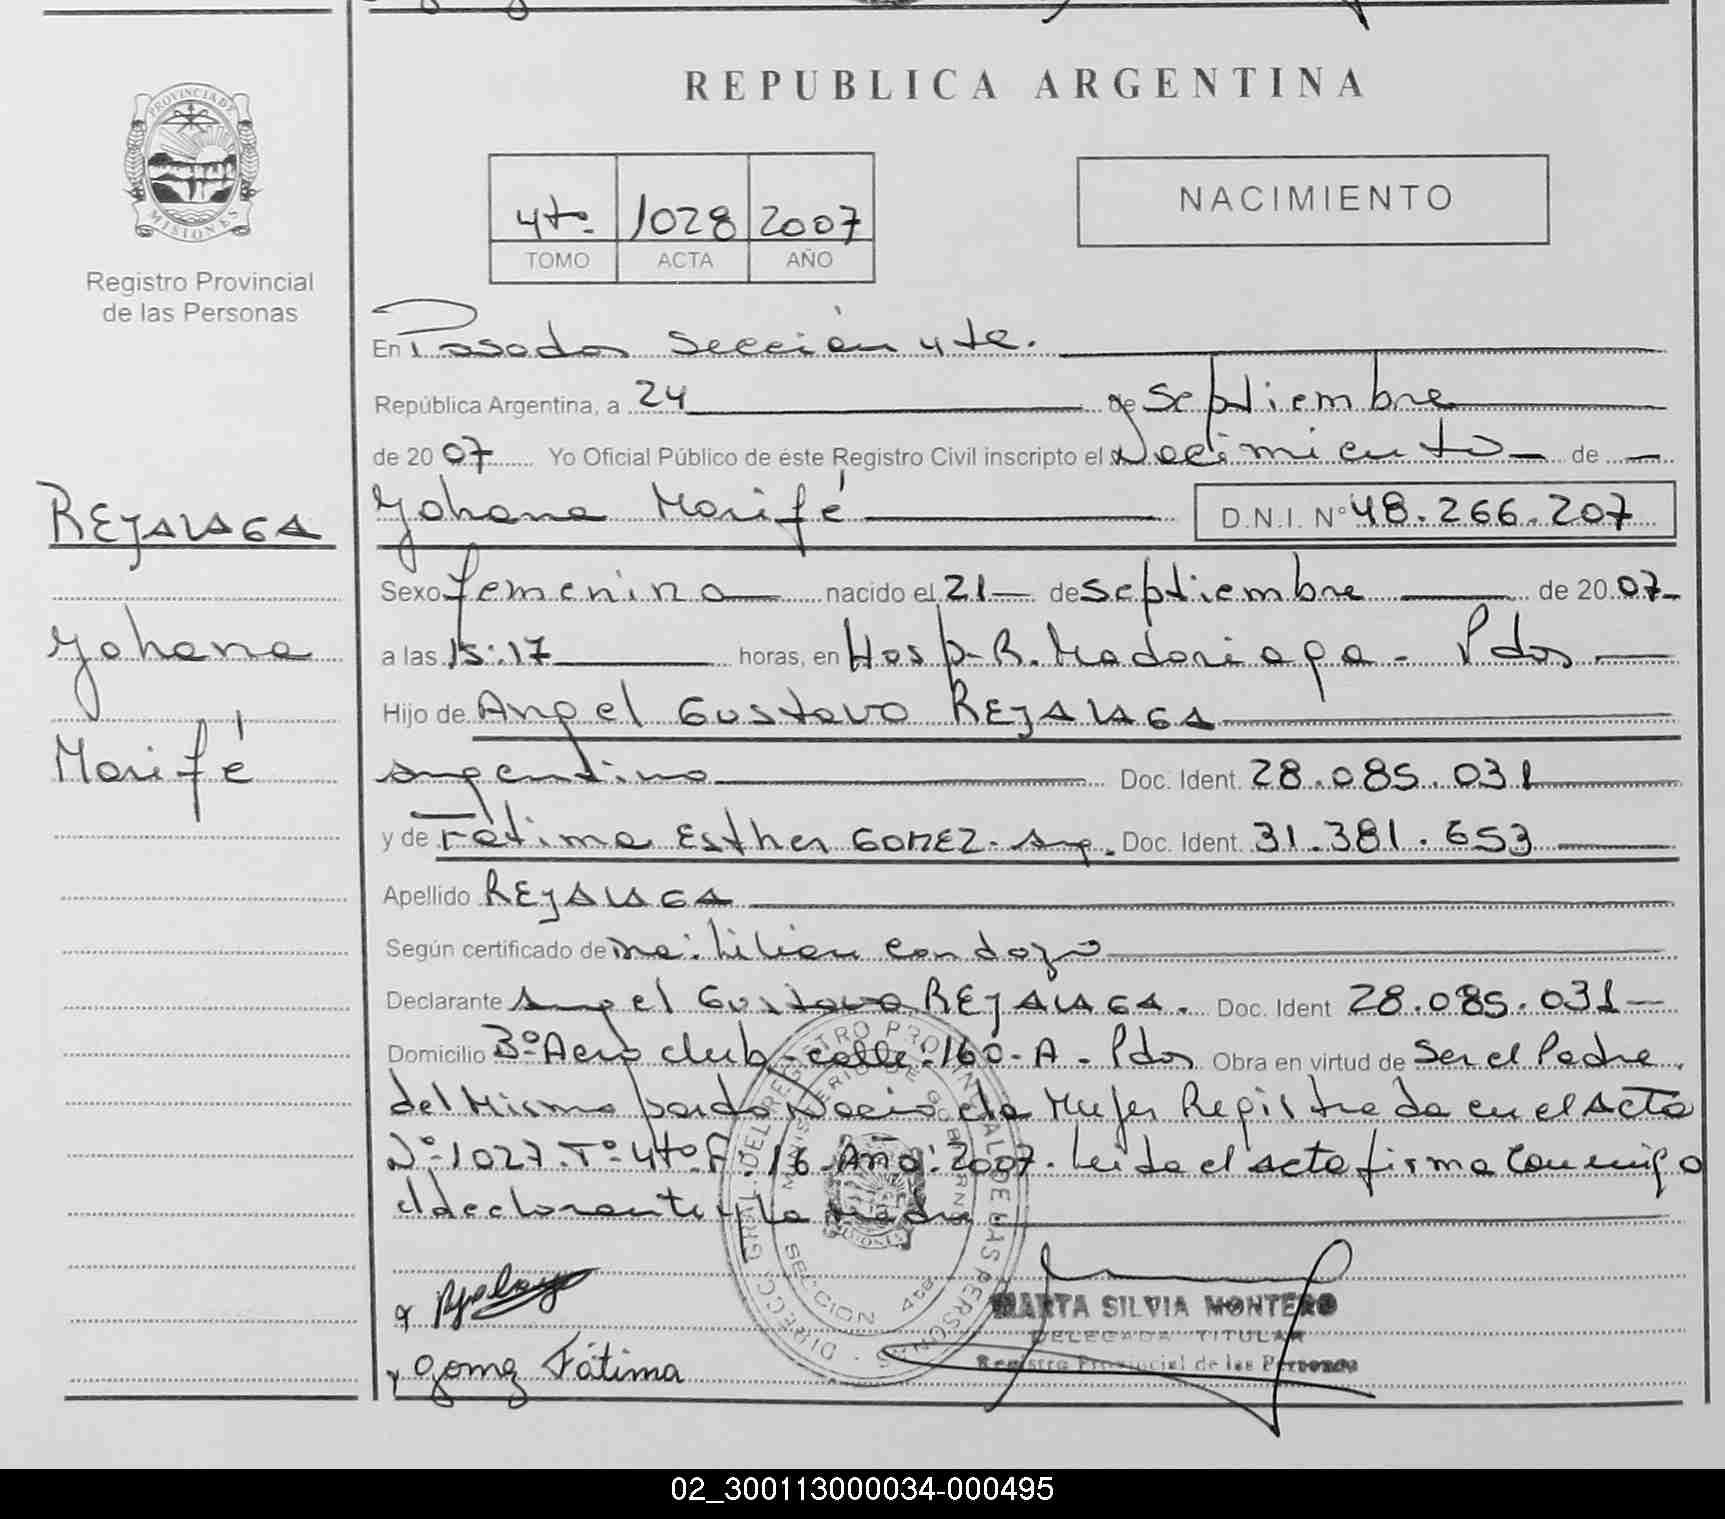 REPUBLICA ARGENTINA
PROVINCIA DE MISIONES
Registro Provincial
de las Personas
4to 1028 2007
TOMO ACTA AÑO
NACIMIENTO
En Posadas Sección 4ta.
República Argentina, a 24 de Septiembre
de 2007 Yo Oficial Público de éste Registro Civil inscripto el Nacimiento de
Yohana Marifé D.N.I. N° 48.266.207
REJALAGA
Yohana
Marifé
Sexo femenino nacido el 21 de Septiembre de 2007
a las 15:17 horas, en Hosp. R. Madariaga - Pdos
Hijo de Angel Gustavo REJALAGA
argentino Doc. Ident. 28.085.031
y de Fátima Esther GOMEZ - Arg. Doc. Ident. 31.381.653
Apellido REJALAGA
Según certificado de Lilian
Declarante Angel Gustavo REJALAGA. Doc. Ident 28.085.031
Domicilio Bº Aero club - calle: 160 - A - Pdos Obra en virtud de Ser el Padre
del Mismo parto Nacio la Mujer Registrada en el Acta
Nº 1027. Tº 4to. F: 16 Año: 2007. Leida el acta firma conmigo
el declarante y la Madre
DIRECC. GRAL. DEL REGISTRO PROVINCIAL DE LAS PERSONAS
MINISTERIO DE GOBIERNO
SECCION 4ta
MARTA SILVIA MONTERO
DELEGADA TITULAR
Registro Provincial de las Personas
Gomez Fátima
02_300113000034-000495